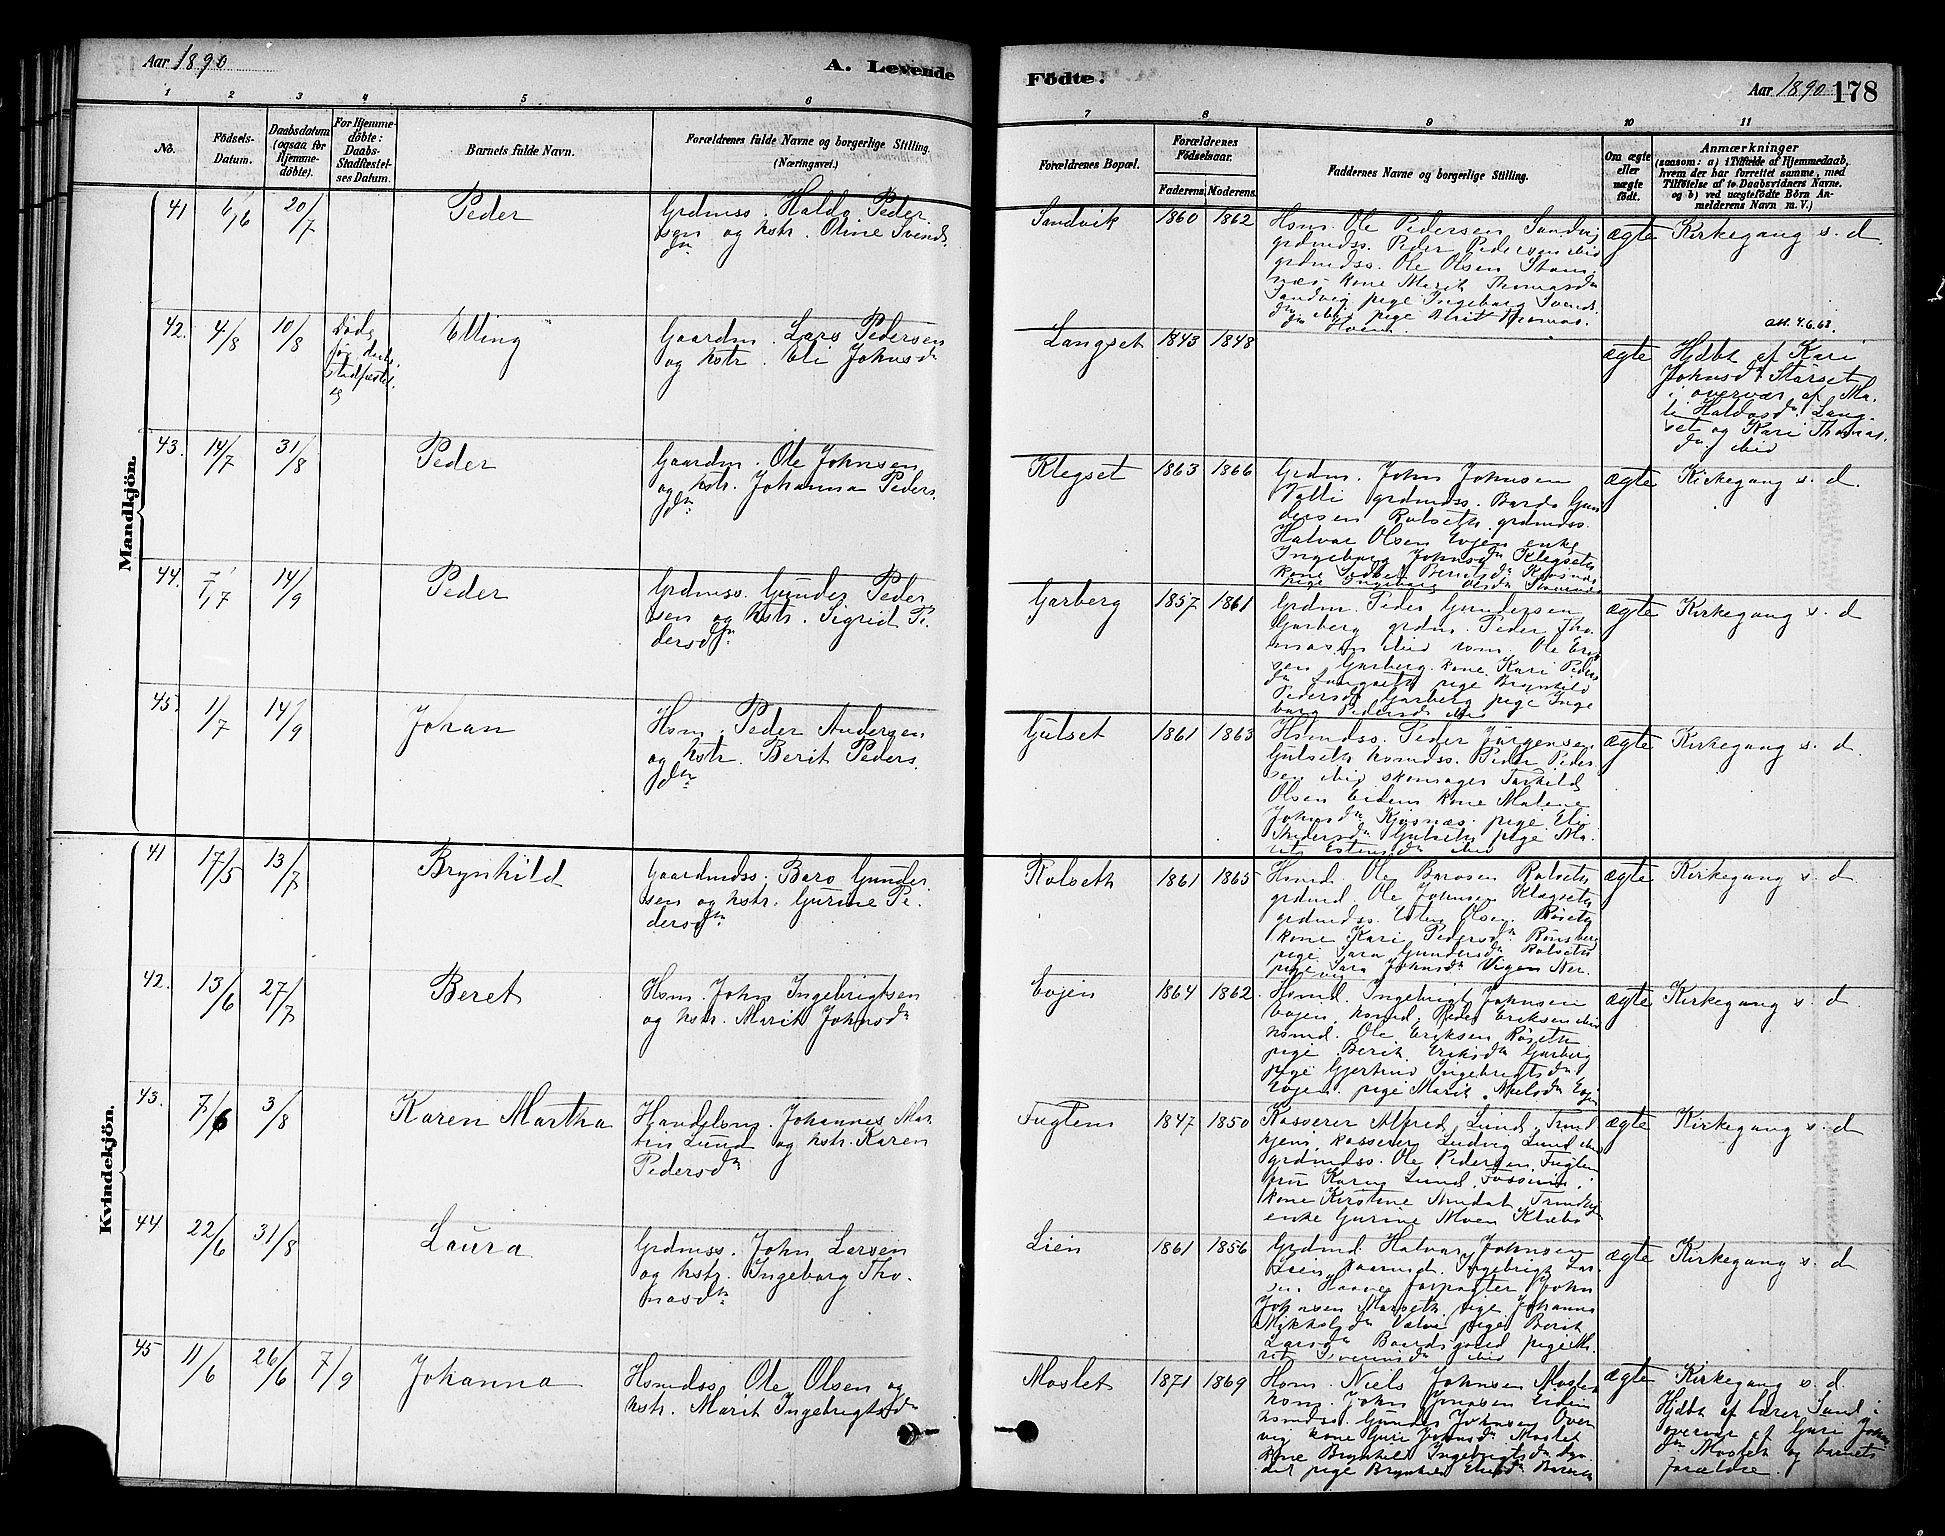 Aar 1890
A. Levende
Födte.
Aar 1890
178
1 2 3 4 5 6 7 8 9 10 11
No.
Födsels-
Datum.
Daabsdatum
(ogsaa for
Hjemme-
döbte).
For Hjemme-
döbte:
Daabs-
Stadfæstel-
ses Datum.
Barnets fulde Navn.
Forældrenes fulde Navne og borgerlige Stilling.
(Næringsvei.)
Forældrenes Bopæl.
Forældrenes
Födselsaar.
Faderens.
Moderens.
Faddernes Navne og borgerlige Stilling.
Om ægte
eller
uægte
födt.
Anmærkninger
(saasom: a) i Tilfælde af Hjemmedaab,
hvem der har forrettet samme, med
Tilföielse af to Daabsvidners Navne.
og b) ved uægtefödte Börn An-
melderens Navn m. V.)
Mandkjön.
41 6/6 20/7
Peder
Grdmss. Haldo Peder
sen og hstr. Oline Svends
dn
Sandvik
1860 1862
Hsm. Ole Pedersen Sandvig
grdmdss. Peder Pedersen ibid
grdmdss. Ole Olsen Stam
næs kone Marit Thomasdn
Sandvig pige Ingeborg Svends
dn ibid pige Berit Thomas
dn
ægte
Kirkegang s. d.
42. 4/8 10/8
Døde
før
stadfæstel
Elling
Gaardm. Lars Pedersen
og hstr. Eli Johnsdn
Langset
1843 1848
ægte
Hjdbt af Kari
Johnsdn Størset
i overvær af Ma-
li Haldosdn Lang-
set og Kari Thomas
dn ibid
43. 14/7 31/8
Peder
Gaardm. Ole Johnsen
og hstr. Johanna Peders
dn
Klegset
1863 1866
Grdm. John Johnsen
Valli grdmdss. Bardo Gun
dersen Rolseth grdmdss.
Halvar Olsen Evjen enke
Ingeborg Johnsdn Klegseth
ægte
Kirkegang s. d.
44. 7/7 14/9
Peder
Grdmss. Gunder Peder
sen og hstr. Sigrid Pe
dersdn
Garberg
1857 1861
Grdm. Peder Gundersen
Garberg grdm. Peder Tho
masen ibid Ole Erik
sen Garberg kone Kari Peders
dn Langseth pige Brynhild
Pedersdn Garberg pige Inge
borg Pedersdn ibid
ægte
Kirkegang s. d
45. 1/7 14/9
Johan
Hsm. Peder Andersen
og hstr. Berit Peders
dn
Gulset
1861 1863
Hsmdss. Peder Jørgensen
Gulseth hsmdss. Peder Peder
sen ibid skomager Torkild
Olsen Eidem kone Malene
Johnsdn Kjøsnæs pige Eli
Pedersdn Gulseth pige Ma
rit Estensdn ibid
ægte
Kirkegang s. d.
Kvindekjön.
41 17/5 13/7
Brynhild
Gaardmdss. Baro Gunder
sen og hstr. Gurine Pe
dersdn
Rolseth
1861 1865
Hsmd. Ole Barosen Rolseth
grdmd Ole Johnsen Klegseth
grdmdss. Esten Olsen Røseth
kone Kari Pedersdn Rønsberg
pige Sara Gundersdn Rolseth
pige Sara Johnsdn Vigen Ner.
ægte
Kirkegang s. d.
42. 13/6 27/7
Beret
Hsm. John Ingebrigtsen
og hstr. Marit Johnsdn
Evjen
1864 1862
Hsmd. Ingebrigt Johnsen
Evjen, hsmd. Peder Eriksen ibid
hsmd. Ole Eriksen Røseth
pige Berit Eriksdn Garberg
pige Gjertrud Ingebrigtsdn
Evjen pige Marit Nielsdn Evjen
ægte
Kirkegang s. d.
43. 7/6 3/8
Karen Martha
Handelsm. Johannes Mar
tin Lund og hstr. Karen
Pedersdn
Fuglem
1847 1850
Kasserer Alfred Lund Trond
hjem, kasserer Ludvig Lund ibid
grdmdss. Ole Pedersen Fuglem
frue Karen Lund
kone Kirstine Trondhj
enke Gurine Moen Klæbo
ægte
Kirkegang s. d
44 22/6 31/8
Laura
Grdmss. John Larsen
og hstr. Ingeborg Tho-
masdn
Lien
1861 1856
Grdmd. Halvar Johnsen
Lien gaardmd. Ingebrigt Lar
sen forpagter John
Johnsen Marseth pige Johanna
Mikkelsdn pige Berit
Larsdn Baardsgaard pige Ma
rit ibid
ægte
Kirkegang s. d
45 11/6 26/6 7/9
Johanna
Hsmdss. Ole Olsen og
hstr. Marit Ingebrigtsdn
Moslet
1871 1869
Hsm. Niels Johnsen Moslet
hsm. John Jonassen Eidem
hsmdss. Gunder Johnsen Over
vig kone Guri Johnsdn Moslet
kone Brynhild Ingebrigtsdn
pige Brynhild
ægte
Kirkegang s. d.
Hjdbt af lærer Sand i
overvær af Guri Johns
dn Moslet og barnets
forældre.